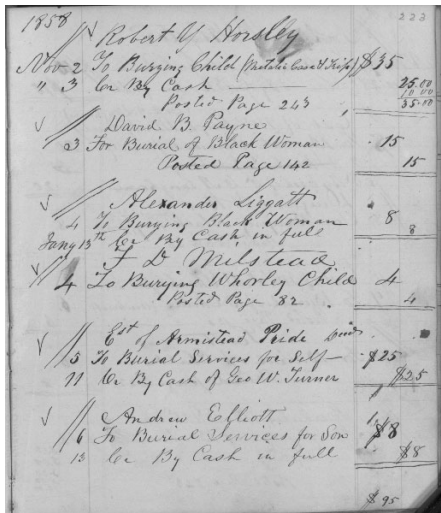 1858 223
Robert Y Horsley
Nov 2 To Burying Child (Metalic Case & Trip) $35
" 3 Cr By Cash 25.00
10.00
Posted Page 243 35.00
David B. Payne
3 For Burial of Black Woman 15
Posted Page 142 15
Alexander Liggatt
4 To Burying Black Woman 8
Jany 13th Cr By Cash in full 8
F D Milstead
4 To Burying Whorley Child 4
Posted Page 82 4
Est of Armistead Pride
5 To Burial Services for Self $25
11 Cr By Cash of Geo W. Turner $25
Andrew Elliott
6 To Burial Services for Son $8
13 Cr By Cash in full $8
$95